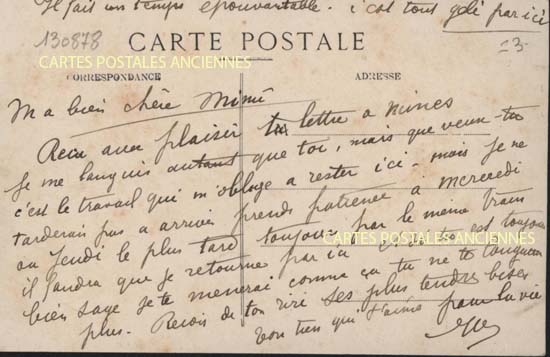 Il fait un temps épouvantable. c'est tout gelé par ici
130878
23-
CARTE POSTALE
CARTES POSTALES ANCIENNES
CORRESPONDANCE
ADRESSE
Ma bien chère Mimi
Recu avec plaisir ta lettre a Nimes
Je me languis autant que toi, mais que veux-tu
c'est le travail qui m'oblige a rester ici. mais je ne
tarderais pas a arriver prends patience a mercredi
ou Jeudi le plus tard toujours par le meme train
CARTES POSTALES ANCIENNES
il faudra que je retourne par ici est toujours
bien sage je te menerai comme ça tu ne te languiras
plus. Recois de ton ses plus tendres bises
ton tien qui t'aime pour la vie